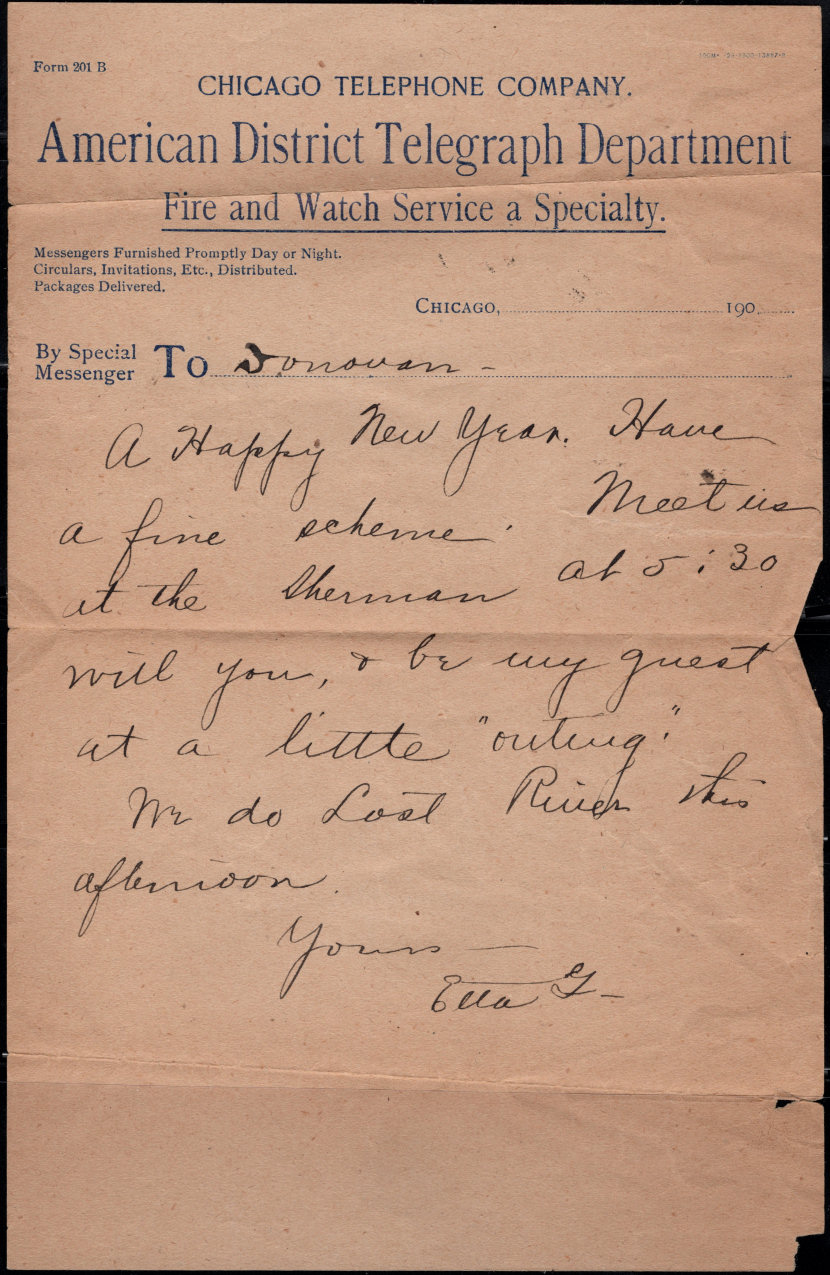 Form 201 B
CHICAGO TELEPHONE COMPANY.
American District Telegraph Department
Fire and Watch Service a Specialty.
Messengers Furnished Promptly Day or Night.
Circulars, Invitations, Etc., Distributed.
Packages Delivered.
CHICAGO, 190
By Special Messenger To Donovan -
A Happy New Year. Have
a fine scheme. Meet us
at the Sherman at 5:30
will you, & be my guest
at a little "outing."
We do Lost River this
afternoon.
Yours —
Etta G -